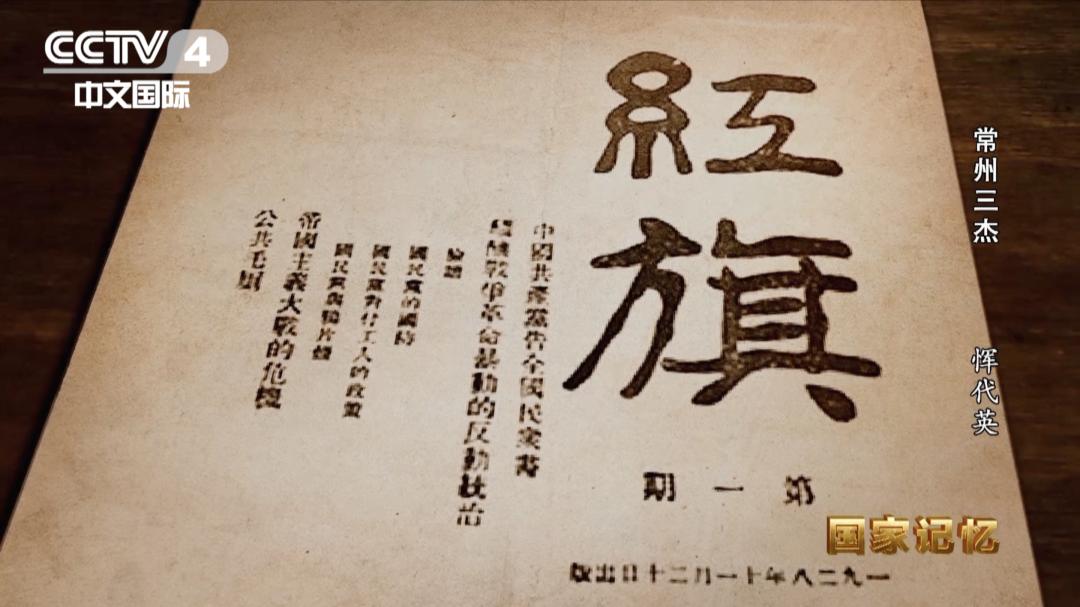 CCTV 4
中文国际
常州三杰
恽代英
紅旗
中國共產黨告全國民衆書
醞釀戰爭革命暴動的反動統治
國民黨的國防
國民黨對付工人的政策
國民黨與鴉片煙
帝國主義大戰的危機
公共毛廁
第一期
一九二八年十一月二十日出版
国家记忆